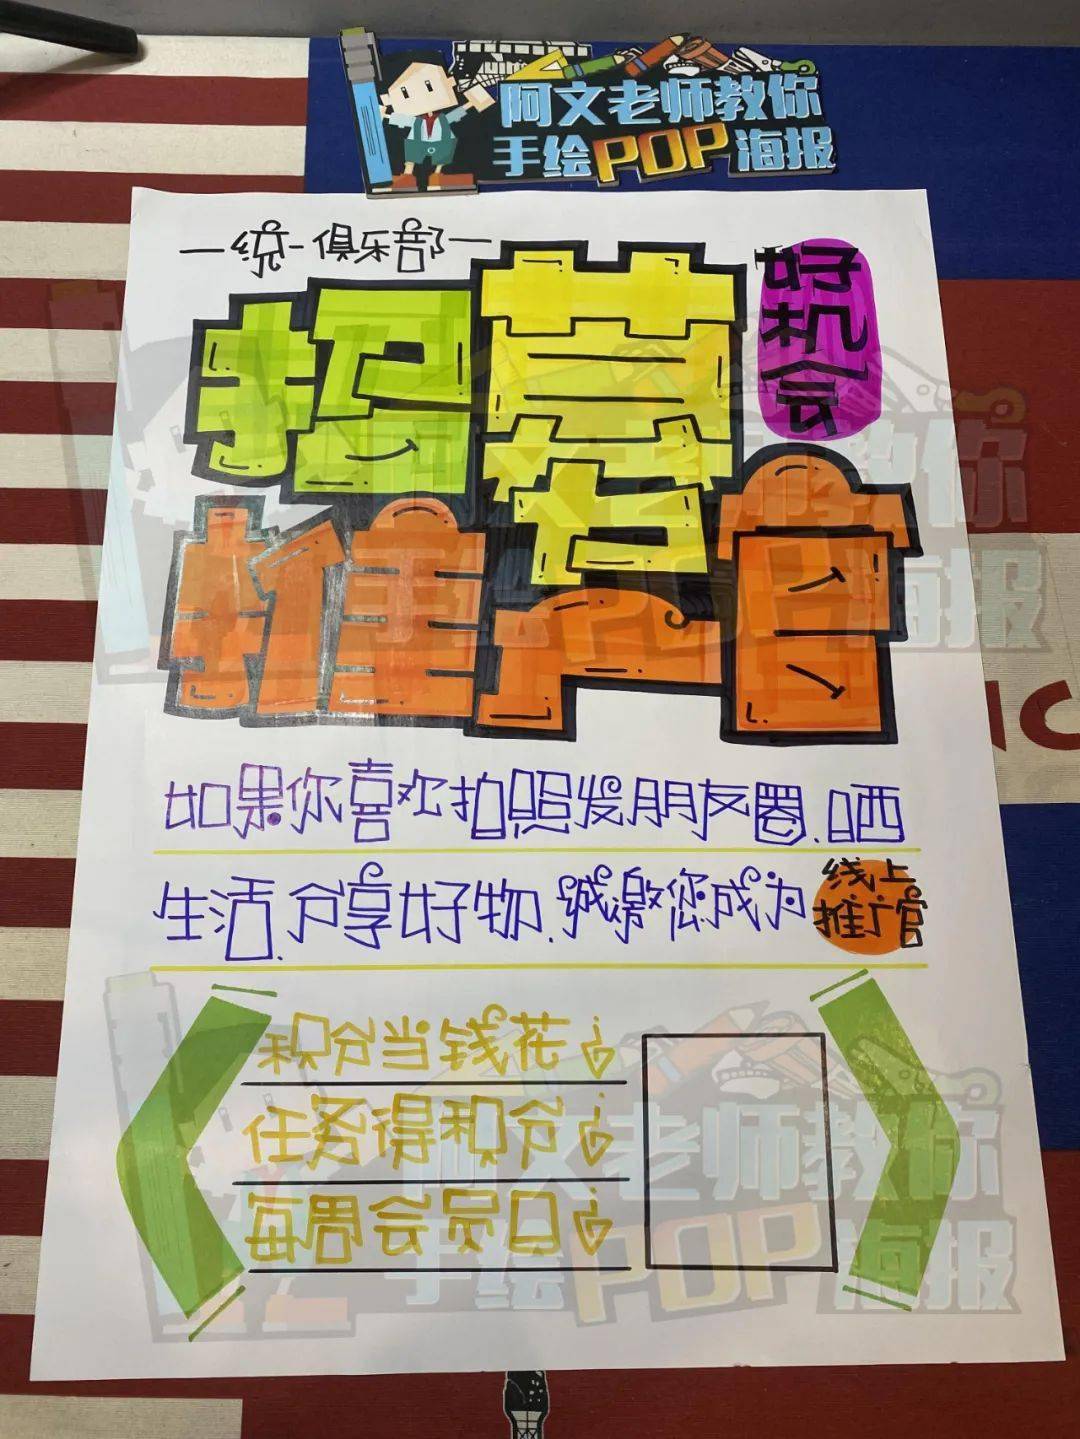 阿文老师教你
手绘POP海报
—统一俱乐部—
好机会
招募
推广官
如果你喜欢拍照发朋友圈、晒
生活、分享好物、诚邀您成为 线上推广官
积分当钱花
任务得积分
每周会员日
阿文老师教你
手绘POP海报
阿文老师教你
手绘POP海报